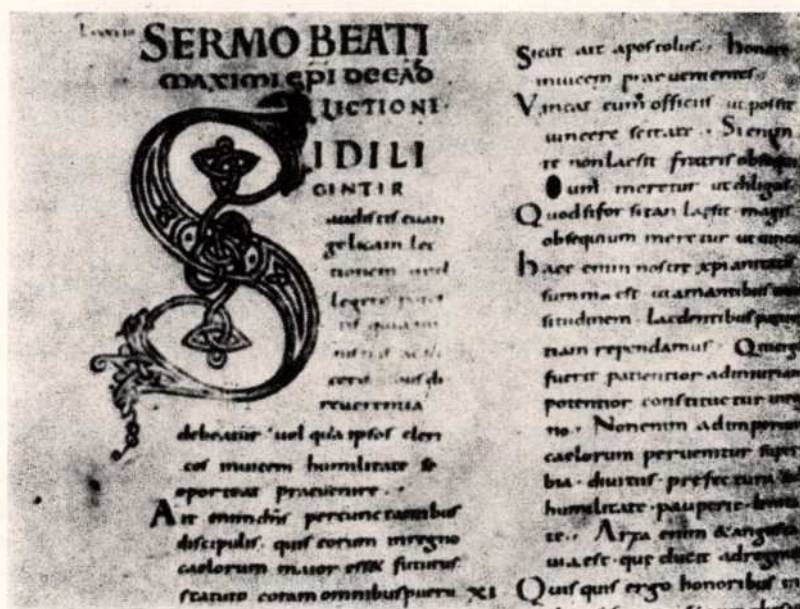 SERMO BEATI
MAXIMI EPI DE CAD
LICTIONI·
SIDILI
GINTIR
audistis euan
gelicam lec
tionem
legere
reuerentia
debeatur uel quia ipsos cleri
cos inuicem humilitate se
oporteat praeuenire·
Ait enim dns percunctantibus
discipulis· quis eorum inregno
caelorum maior esset futurus
statuto coram omnibus pueru XI
Sicut ait apostolus·· honore
inuicem praeuenientes·
Vincat eum officiis ut possit
uincere
te non laesit fratris
um meretur ut diligas·
Quod si forsitan laesit magis
obsequium meretur ut
haec enim nostre xpianitatis
summa est ut amantibus
situdinem· Laedentibus
tiam rependamus· Quisergo
fuerit patientior ad iniuriam
potentior constituetur inreg
no· Non enim ad imperium
caelorum peruenitur super
bia· diuitiis· prefectura
humilitate· paupertate
te·· Arta enim & angusta
uia est· quę ducit adregnum
Quisquis ergo honoribus